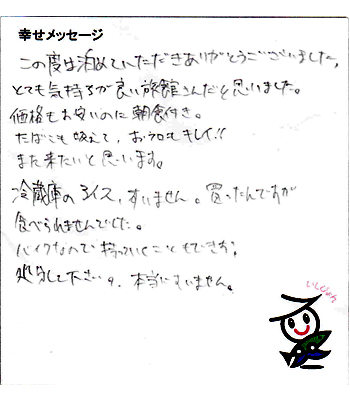 幸せメッセージ
この度は泊めていただきありがとうございました。
とても気持ちが良い旅館さんだと思いました。
価格もお安いのに朝食付き。
たばこも吸えて、おフロもキレイ!!
また来たいと思います。
冷蔵庫の アイス、すいません。買ったんですが
食べられませんでした。
バイクなので持っていくこともできず、
処分して下さい。本当にすいません。